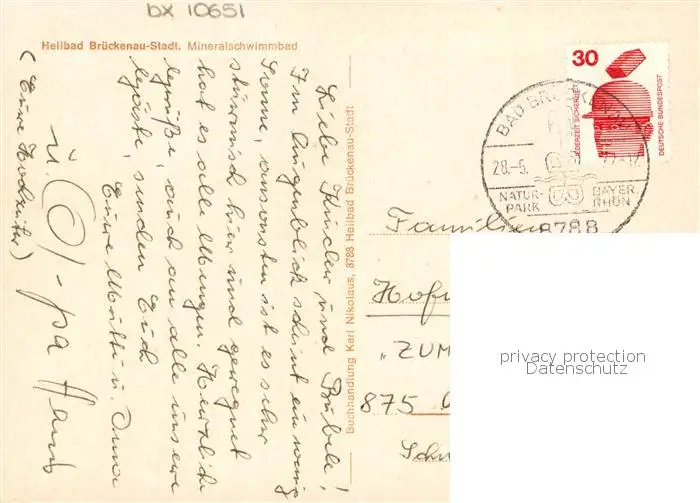 bx 10651
Heilbad Brückenau-Stadt. Mineralschwimmbad
Liebe Kinder und Bubele!
Im Augenblick scheint ein wenig
Sonne, ansonsten ist es sehr
stürmisch hier und geregnet
hat es alle Mengen. Herzliche
Grüße, auch an alle unsere
Gäste, senden Euch
Eure Mutti u.
ü. Opa Hans
(Eure Hochzeiter)
Buchhandlung Karl Nikolaus, 8788 Heilbad Brückenau-Stadt
30
JEDERZEIT SICHERHEIT
DEUTSCHE BUNDESPOST
BAD BRÜCKENAU
28.-5.
NATUR-
PARK
BAYER.
RHÖN
8788
Familie
"ZUM
875
privacy protection
Datenschutz